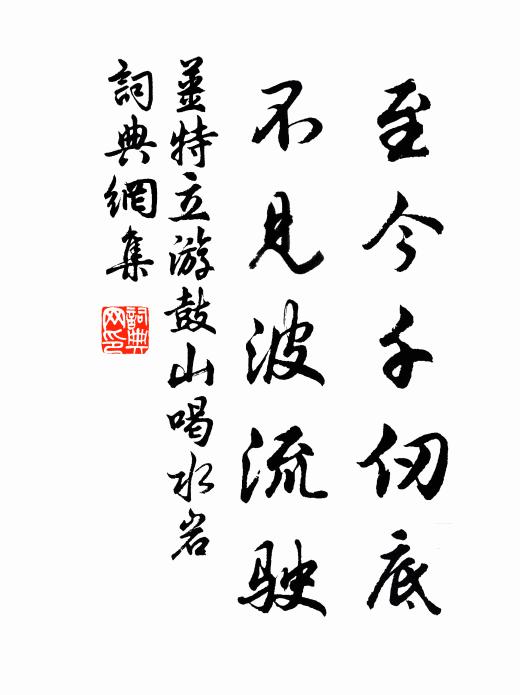 至今千仞底
不見波流駛
薑特立游鼓山喝水岩
詞典網集
詞典网印